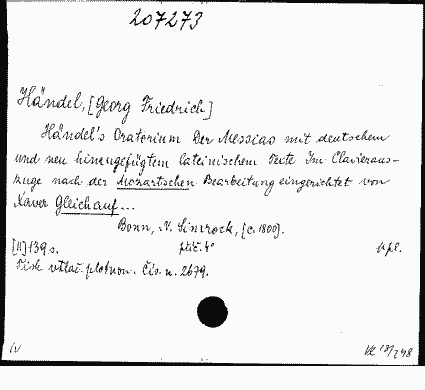 207273
Händel, [Georg Friedrich]
Händel's Oratorium Der Messias mit deutschem
und neu hinzugefügtem lateinischem Texte Im Clavieraus-
zuge nach der Mozartschen Bearbeitung eingerichtet von
Xaver Gleichauf...
Bonn, N. Simrock, [c. 1800].
[II] 139 s. příč. 4°
Tisk vtlač. plotnon. Čís. n. 2679.
IV